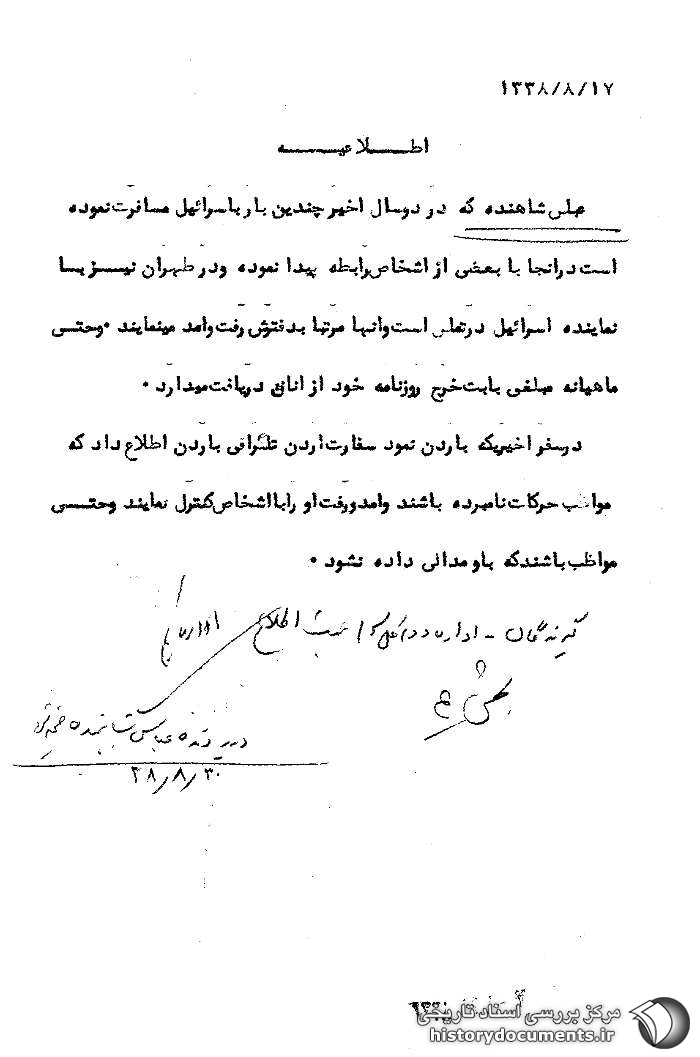 ۱۳۳۸/۸/۱۷
اطلاعیه
علی شاهنده که در دوسال اخیر چندین بار باسرائیل مسافرت نموده
است درانجا با بعضی از اشخاص رابطه پیدا نموده ودر طهران نیز با
نماینده اسرائیل درتماس است وانها مرتبا بدفترش رفت وامد مینمایند ۰ وحتی
ماهیانه مبلغی بابت خرج روزنامه خود از انان دریافت میدارد ۰
درسفر اخیریکه باردن نمود سفارت اردن تلگرافی باردن اطلاع داد که
مواظب حرکات نامبرده باشند وامد ورفت او را با اشخاص کنترل نمایند وحتی
مواظب باشند که باو مدالی داده نشود ۰
گیرندگان - اداره جهت اطلاع
بخش ۵
در پرونده عباس شاهنده ضمیمه شود
۳۸/۸/۳۰
مرکز بررسی اسناد تاریخی
historydocuments.ir